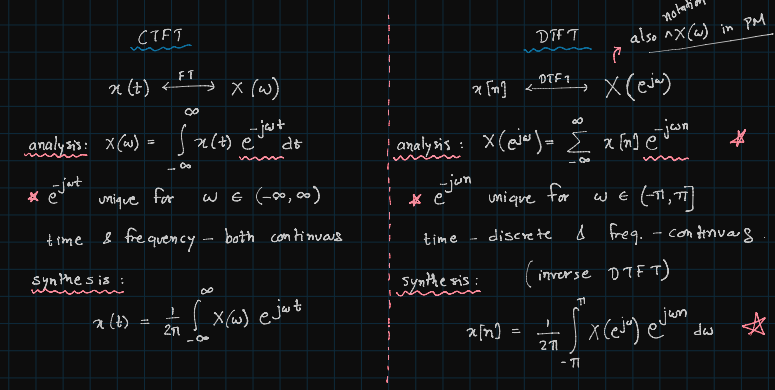 CTFT
x(t) ←FT→ X(ω)
analysis: X(ω) = ∫_{-∞}^{∞} x(t) e^{-jωt} dt
* e^{-jωt} unique for ω ∈ (-∞, ∞)
time & frequency - both continuous
synthesis:
x(t) = 1/2π ∫_{-∞}^{∞} X(ω) e^{jωt}
notation
also ∧X(ω) in PM
DTFT
x[n] ←DTFT→ X(e^{jω})
analysis: X(e^{jω}) = Σ_{-∞}^{∞} x[n] e^{-jωn} ☆
* e^{-jωn} unique for ω ∈ (-π, π]
time - discrete & freq. - continuous.
synthesis: (inverse DTFT)
x[n] = 1/2π ∫_{-π}^{π} X(e^{jω}) e^{jωn} dω ☆